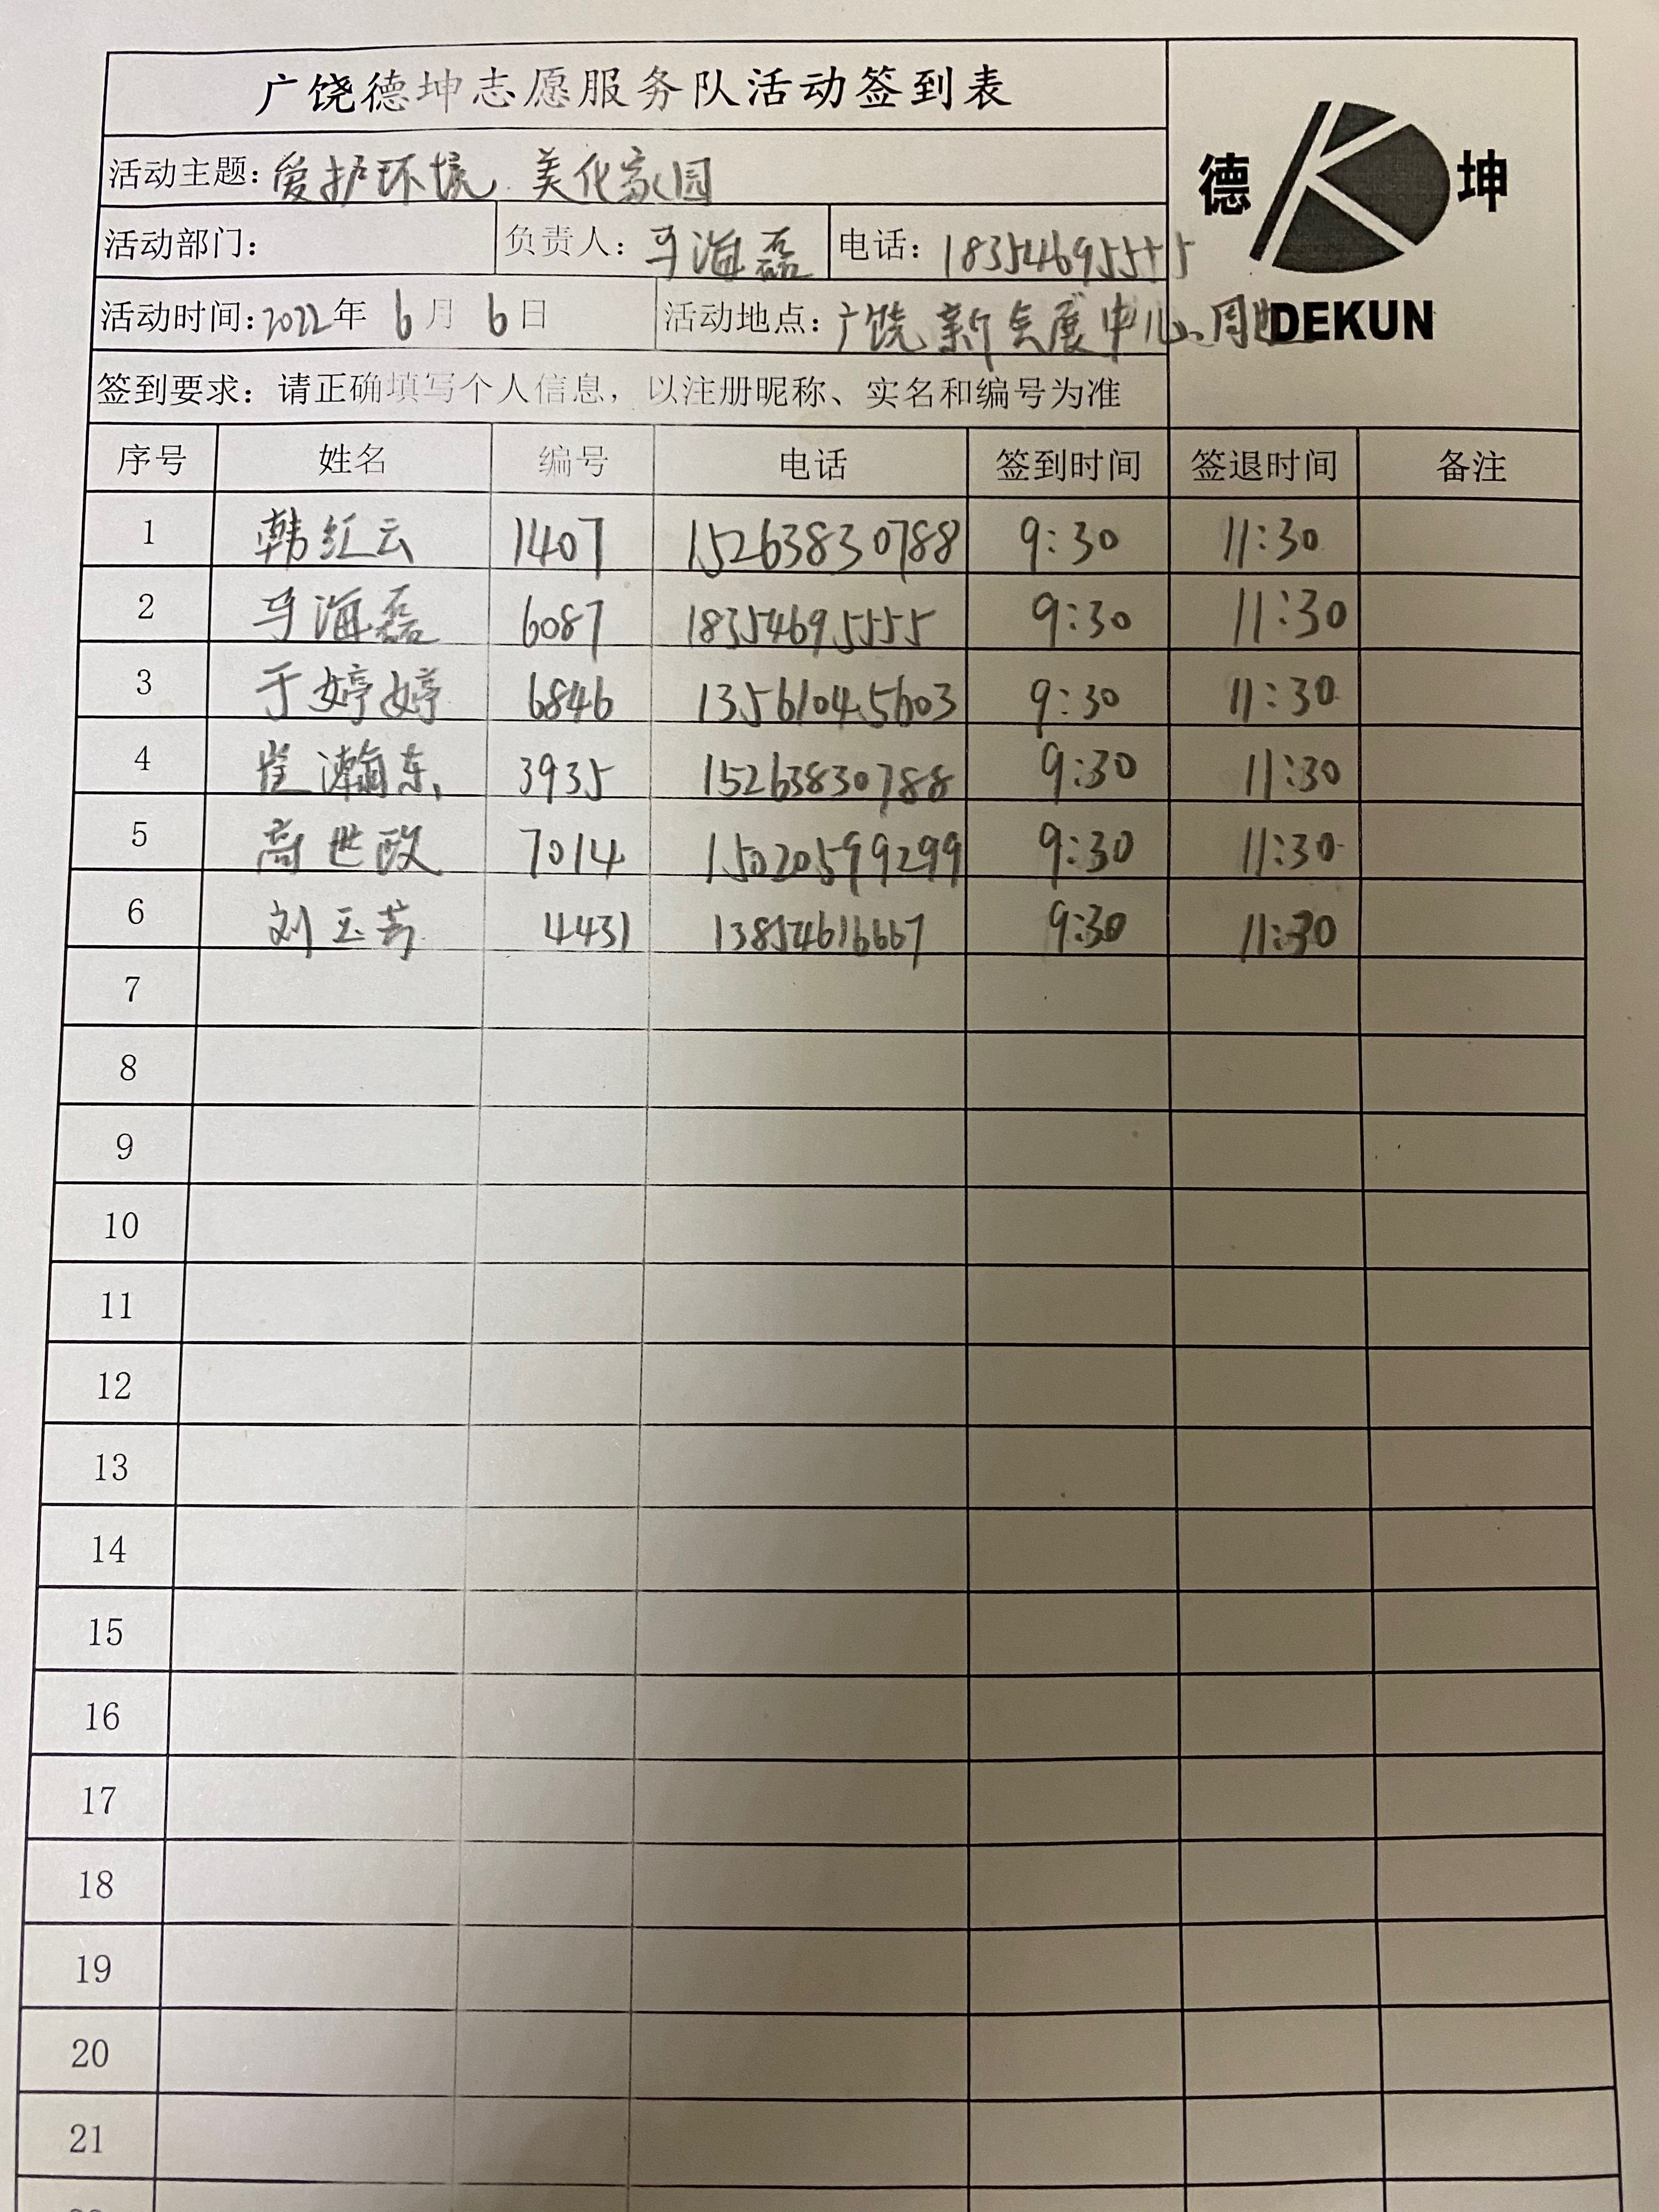 广饶德坤志愿服务队活动签到表
德 坤
DEKUN
活动主题：爱护环境 美化家园
活动部门： 负责人：马海磊 电话：18354695555
活动时间：2022年 6月 6日 活动地点：广饶新会展中心周边
签到要求：请正确填写个人信息，以注册昵称、实名和编号为准
序号 姓名 编号 电话 签到时间 签退时间 备注
1 韩红云 1407 15263830788 9:30 11:30
2 马海磊 6087 18354695555 9:30 11:30
3 于婷婷 6846 13561045603 9:30 11:30
4 崔瀚东 3935 15263830788 9:30 11:30
5 高世政 7014 15020599299 9:30 11:30
6 刘玉芳 4431 13854616667 9:30 11:30
7
8
9
10
11
12
13
14
15
16
17
18
19
20
21